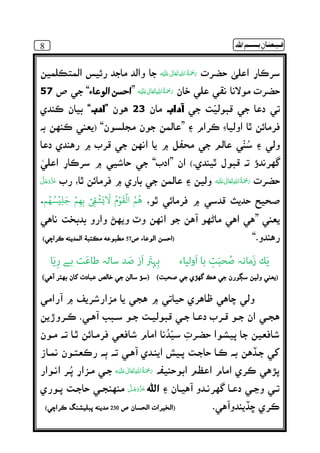 8
فيضانِ بسم الله
سرڪار اعليٰ حضرت رَحْمَةُ اللهِ تَعَالٰی عَلَيْه جا والد ماجد رئيس المتڪلمين
حضرت مولانا نقي علي خان رَحْمَةُ اللهِ تَعَالٰی عَلَيْه ”احسن الوعاء“ جي ص 57
تي دعا جي قبوليّت جي آداب مان 23 هون ”ادب“ بيان ڪندي
فرمائن ٿا اولياءِ ڪرام ۽ ”عالمن جون مجلسون“ (يعني ڪنهن بہ
ولي ۽ سُنّي عالم جي محفل ۾ يا انهن جي قرب ۾ رهندي دعا
گهرندؤ تہ قبول ٿيندي.) ان ”ادب“ جي حاشيي ۾ سرڪار اعليٰ
حضرت رَحْمَةُ اللهِ تَعَالٰی عَلَيْه ولين ۽ عالمن جي باري ۾ فرمائن ٿا، رب عَزَّوَجَلَّ
صحيح حديث قدسي ۾ فرمائي ٿو، هُمُ الْقَوْمُ لَا يَشْقٰی بِهِمْ جَلِيْسُهُمْ.
يعني ”هي اهي ماڻهو آهن جو انهن وٽ ويهڻ وارو بدبخت ناهي
رهندو.“ (احسن الوعاء ص57 مطبوعه مڪتبة المدينه ڪراچي)
يَک زَمانہ صُحبَتِ با اَولِیاء بِہتَر اَز صَد سالہ طاعَت بے رِیَا
(يعني ولين سڳورن جي هڪ گهڙي جي صحبت) (سؤ سالن جي خالص عبادت کان بهتر آهي)
ولي چاهي ظاهري حياتي ۾ هجي يا مزارشريف ۾ آرامي
هجي ان جو قرب دعا جي قبوليت جو سبب آهي. ڪروڙين
شافعين جا پيشوا حضرتِ سيّدُنا امام شافعي فرمائن ٿا تہ مون
کي جڏهن بہ ڪا حاجت پيش ايندي آهي تہ بہ رڪعتون نماز
پڙهي ڪري امام اعظم ابوحنيفہ رَحْمَةُ اللهِ تَعَالٰی عَلَيْه جي مزار پُر انوار
تي وڃي دعا گهرندو آهيان ۽ الله عَزَّوَجَلَّ منهنجي حاجت پوري
ڪري ڇڏيندوآهي. (الخيرات الحسان ص 230 مدينه پبليشنگ ڪراچي)